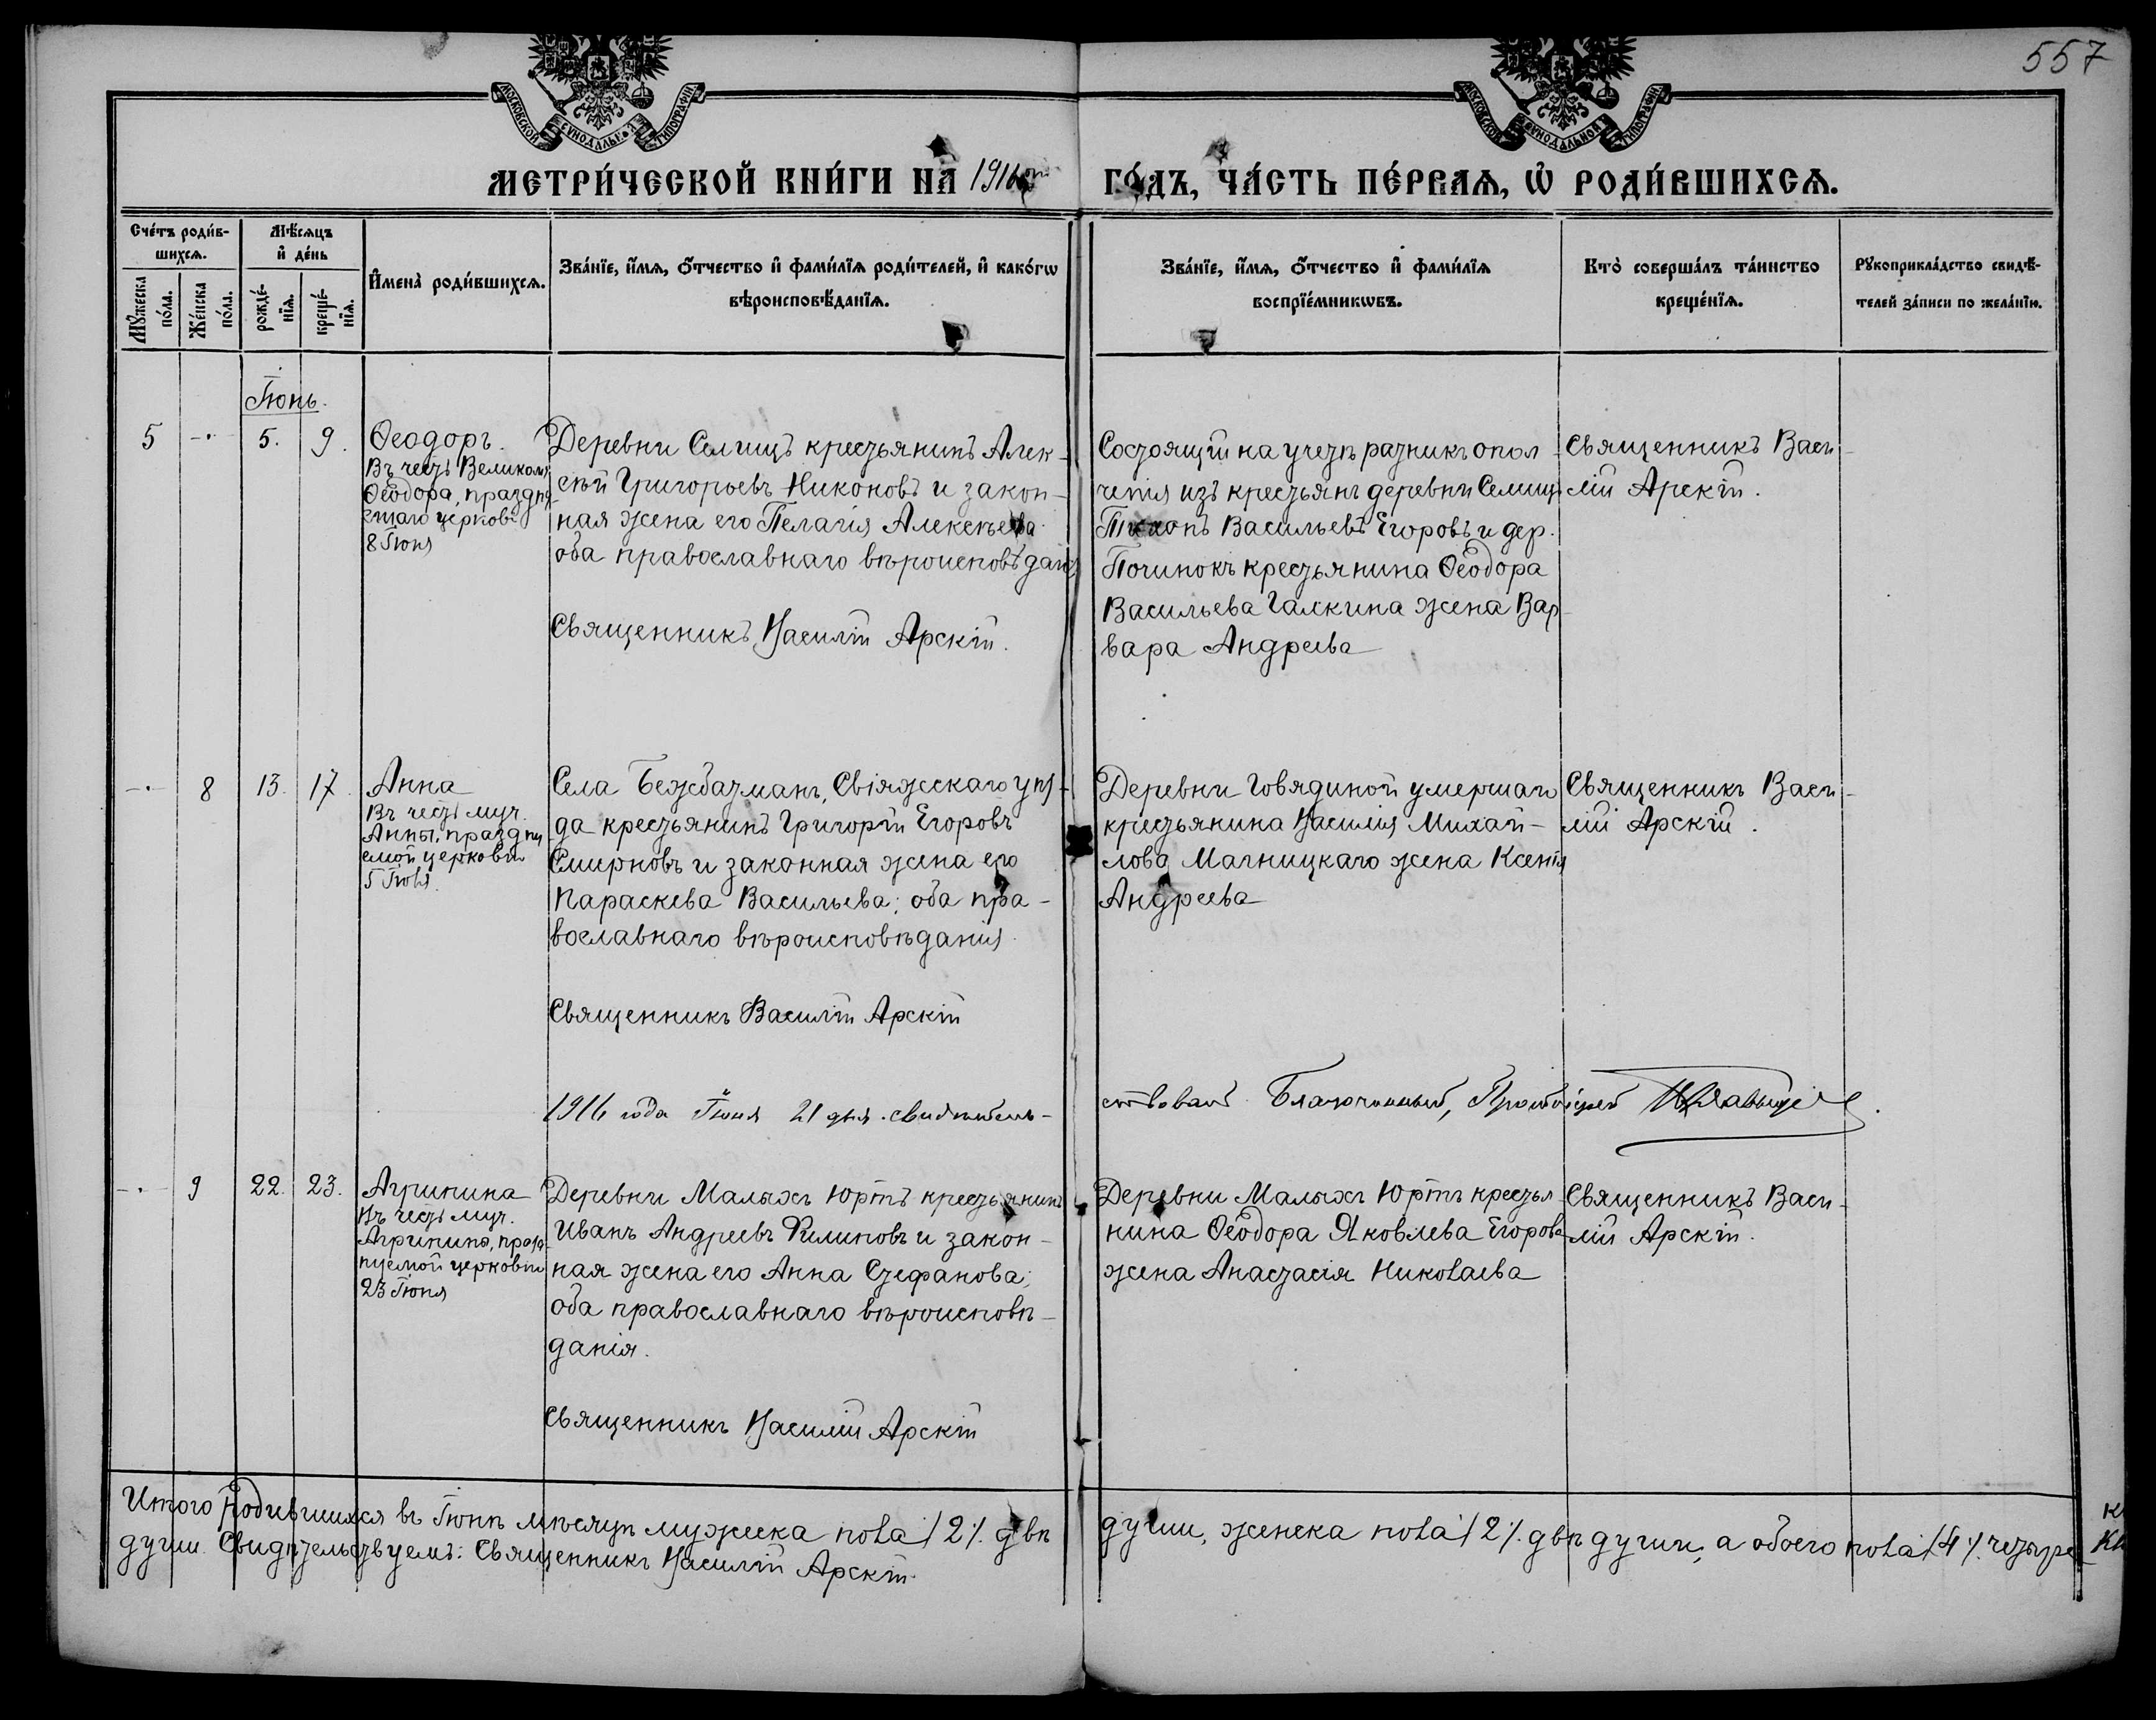 557
МОСКОВСКОЙ СѴНОДАЛЬНОЙ ТИПОГРАФІИ
МОСКОВСКОЙ СѴНОДАЛЬНОЙ ТИПОГРАФІИ
МЕТРИ́ЧЕСКОЙ КНИ́ГИ НА 1916 ГО́ДЪ, ЧА́СТЬ ПЕ́РВАѦ, Ѡ҆ РОДИ́ВШИХСѦ.
Сче́тъ роди́в-
шихсѧ.
Мꙋ́жеска
по́ла.
Же́нска
по́ла.
Мѣ́сѧцъ
и҆ де́нь
рожде́-
нїѧ.
креще́-
нїѧ.
И҆мена̀ роди́вшихсѧ.
Зва́нїе, и҆́мѧ, ѻ҆́тчество и҆ фами́лїѧ роди́телей, и҆ како́гѡ
вѣроисповѣ́данїѧ.
Зва́нїе, и҆́мѧ, ѻ҆́тчество и҆ фами́лїѧ
воспрїе́мникѡвъ.
Кто̀ соверша́лъ та́инство
креще́нїѧ.
Рꙋкоприкла́дство свидѣ́-
телей за́писи по жела́нїю.
Іюнь.
5 -•- 5. 9.
Ѳеодоръ.
Въ честь Великом.
Ѳеодора, праздну
емаго церков.
8 Іюня
Деревни Селищъ крестьянинъ Алек-
сѣй Григорьевъ Никоновъ и закон-
ная жена его Пелагія Алексѣева
оба православнаго вѣроисповѣданія
Священникъ Василій Арскій.
Состоящій на учетѣ ратникъ опол-
ченія изъ крестьянъ деревни Селищъ
Тихонъ Васильевъ Егоровъ и дер.
Починокъ крестьянина Ѳеодора
Васильева Галкина жена Вар-
вара Андреева
Священникъ Васи-
лій Арскій.
-•- 8 13. 17.
Анна
Въ честь муч.
Анны, праздну
емой церковію
5 Іюля.
Села Бежбатманъ, Свіяжскаго уѣз-
да крестьянинъ Григорій Егоровъ
Смирновъ и законная жена его
Параскева Васильева; оба пра-
вославнаго вѣроисповѣданія.
Священникъ Василій Арскій
Деревни Говядиной умершаго
крестьянина Василія Михай-
лова Магницкаго жена Ксенія
Андреева
Священникъ Васи-
лій Арскій.
1916 года Іюня 21 дня. свидѣтель-
ствовалъ Благочинный, Протоіерей
-•- 9 22. 23.
Агрипина
Въ честь муч.
Агрипины, празд-
нуемой церковію
23 Іюня
Деревни Малыхъ Юртъ крестьянинъ
Иванъ Андреевъ Филиповъ и закон-
ная жена его Анна Стефанова;
оба православнаго вѣроисповѣ-
данія.
Священникъ Василій Арскій
Деревни Малыхъ Юртъ крестья-
нина Ѳеодора Яковлева Егорова
жена Анастасія Николаева
Священникъ Васи-
лій Арскій.
Итого родившихся въ Іюнѣ мѣсяцѣ мужеска пола /2/. двѣ души, женска пола /2/. двѣ души, а обоего пола /4/. четыре
души. Свидѣтельствуемъ: Священникъ Василій Арскій.